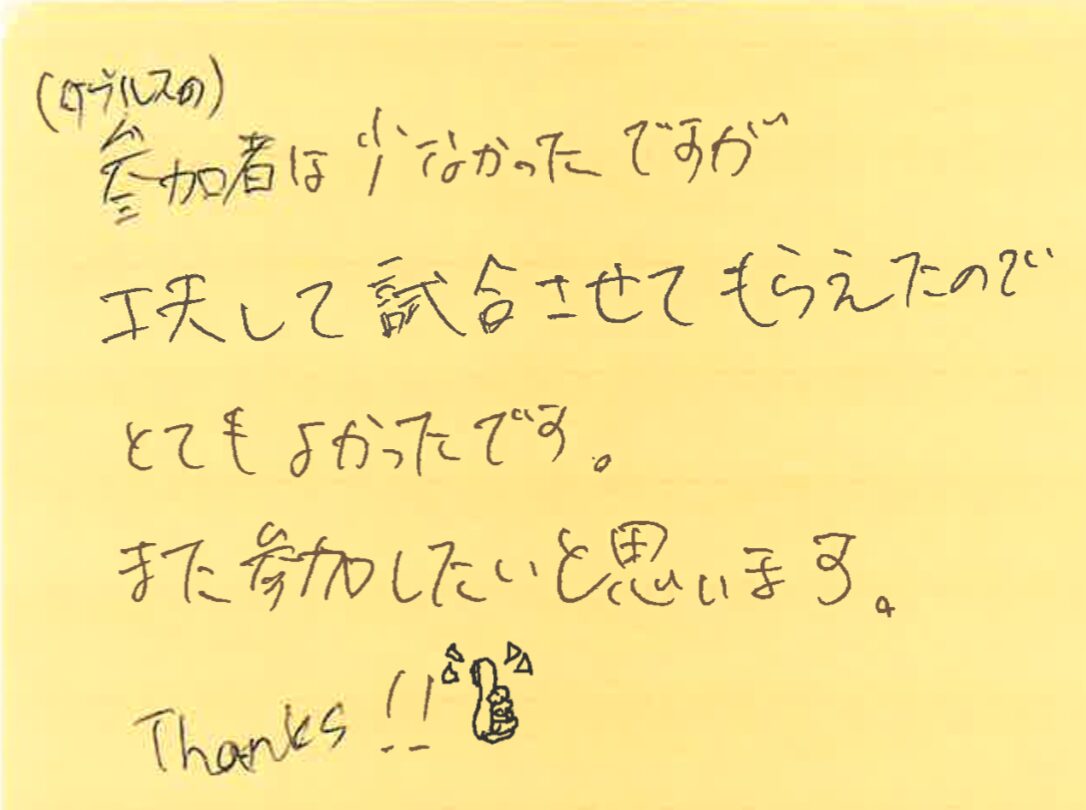 (ダブルスの)
参加者は少なかったですが
工夫して試合させてもらえたので
とてもよかったです。
また参加したいと思います。
Thanks!!